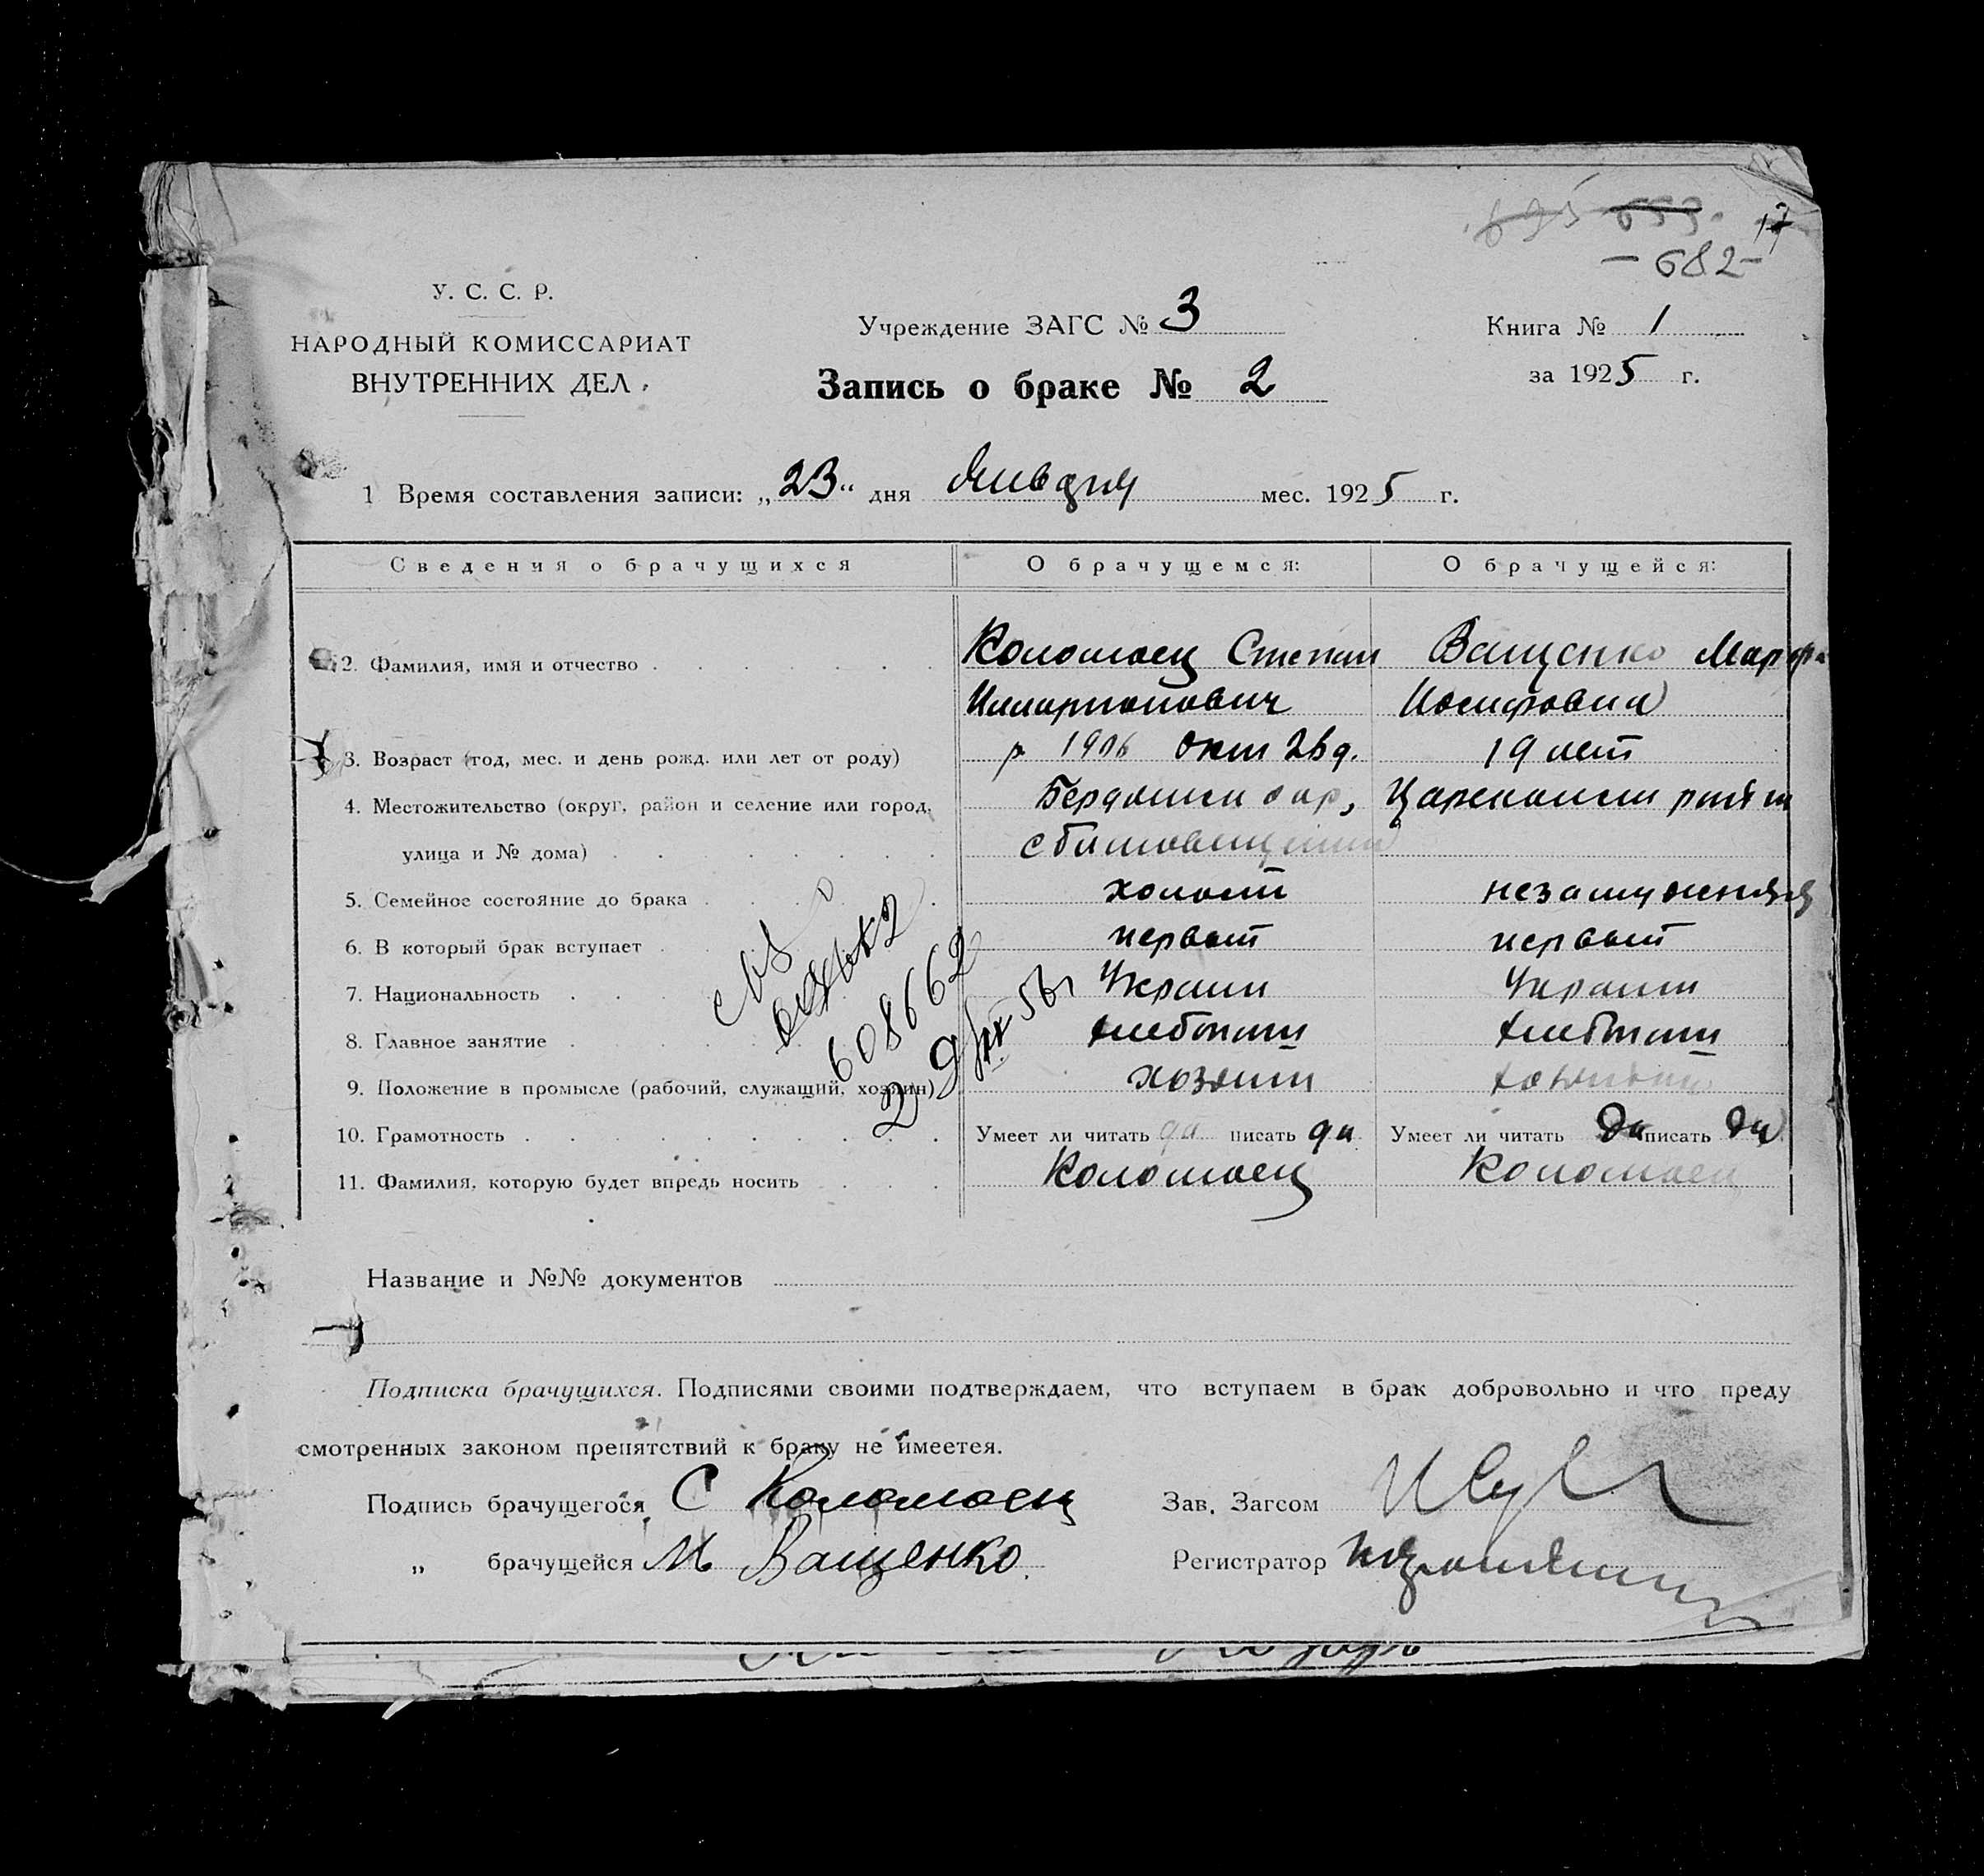 693 653. 17
- 682 -
У. С. С. Р.
НАРОДНЫЙ КОМИССАРИАТ
ВНУТРЕННИХ ДЕЛ.
Учреждение ЗАГС № 3
Запись о браке № 2
Книга № 1
за 1925 г.
1 Время составления записи: „23“ дня Января мес. 1925 г.
Сведения о брачущихся О брачущемся: О брачущейся:
2. Фамилия, имя и отчество Коломоец Степан Ващенко Марфа
Иосифовна
3. Возраст (год, мес. и день рожд. или лет от роду) р 1906 окт 26 д. 19 лет
4. Местожительство (округ, район и селение или город, Бердянск окр,
улица и № дома)
5. Семейное состояние до брака холост незамужняя
6. В который брак вступает первый первый
7. Национальность Украин Украин
8. Главное занятие хлебопаш хлебопаш
9. Положение в промысле (рабочий, служащий, хозяин) хозяин
10. Грамотность Умеет ли читать да писать да Умеет ли читать да писать да
11. Фамилия, которую будет впредь носить Коломоец Коломоец
608662
Название и №№ документов
Подписка брачущихся. Подписями своими подтверждаем, что вступаем в брак добровольно и что преду
смотренных законом препятствий к браку не имеется.
Подпись брачущегося С Коломоец Зав. Загсом
„ брачущейся М Ващенко. Регистратор